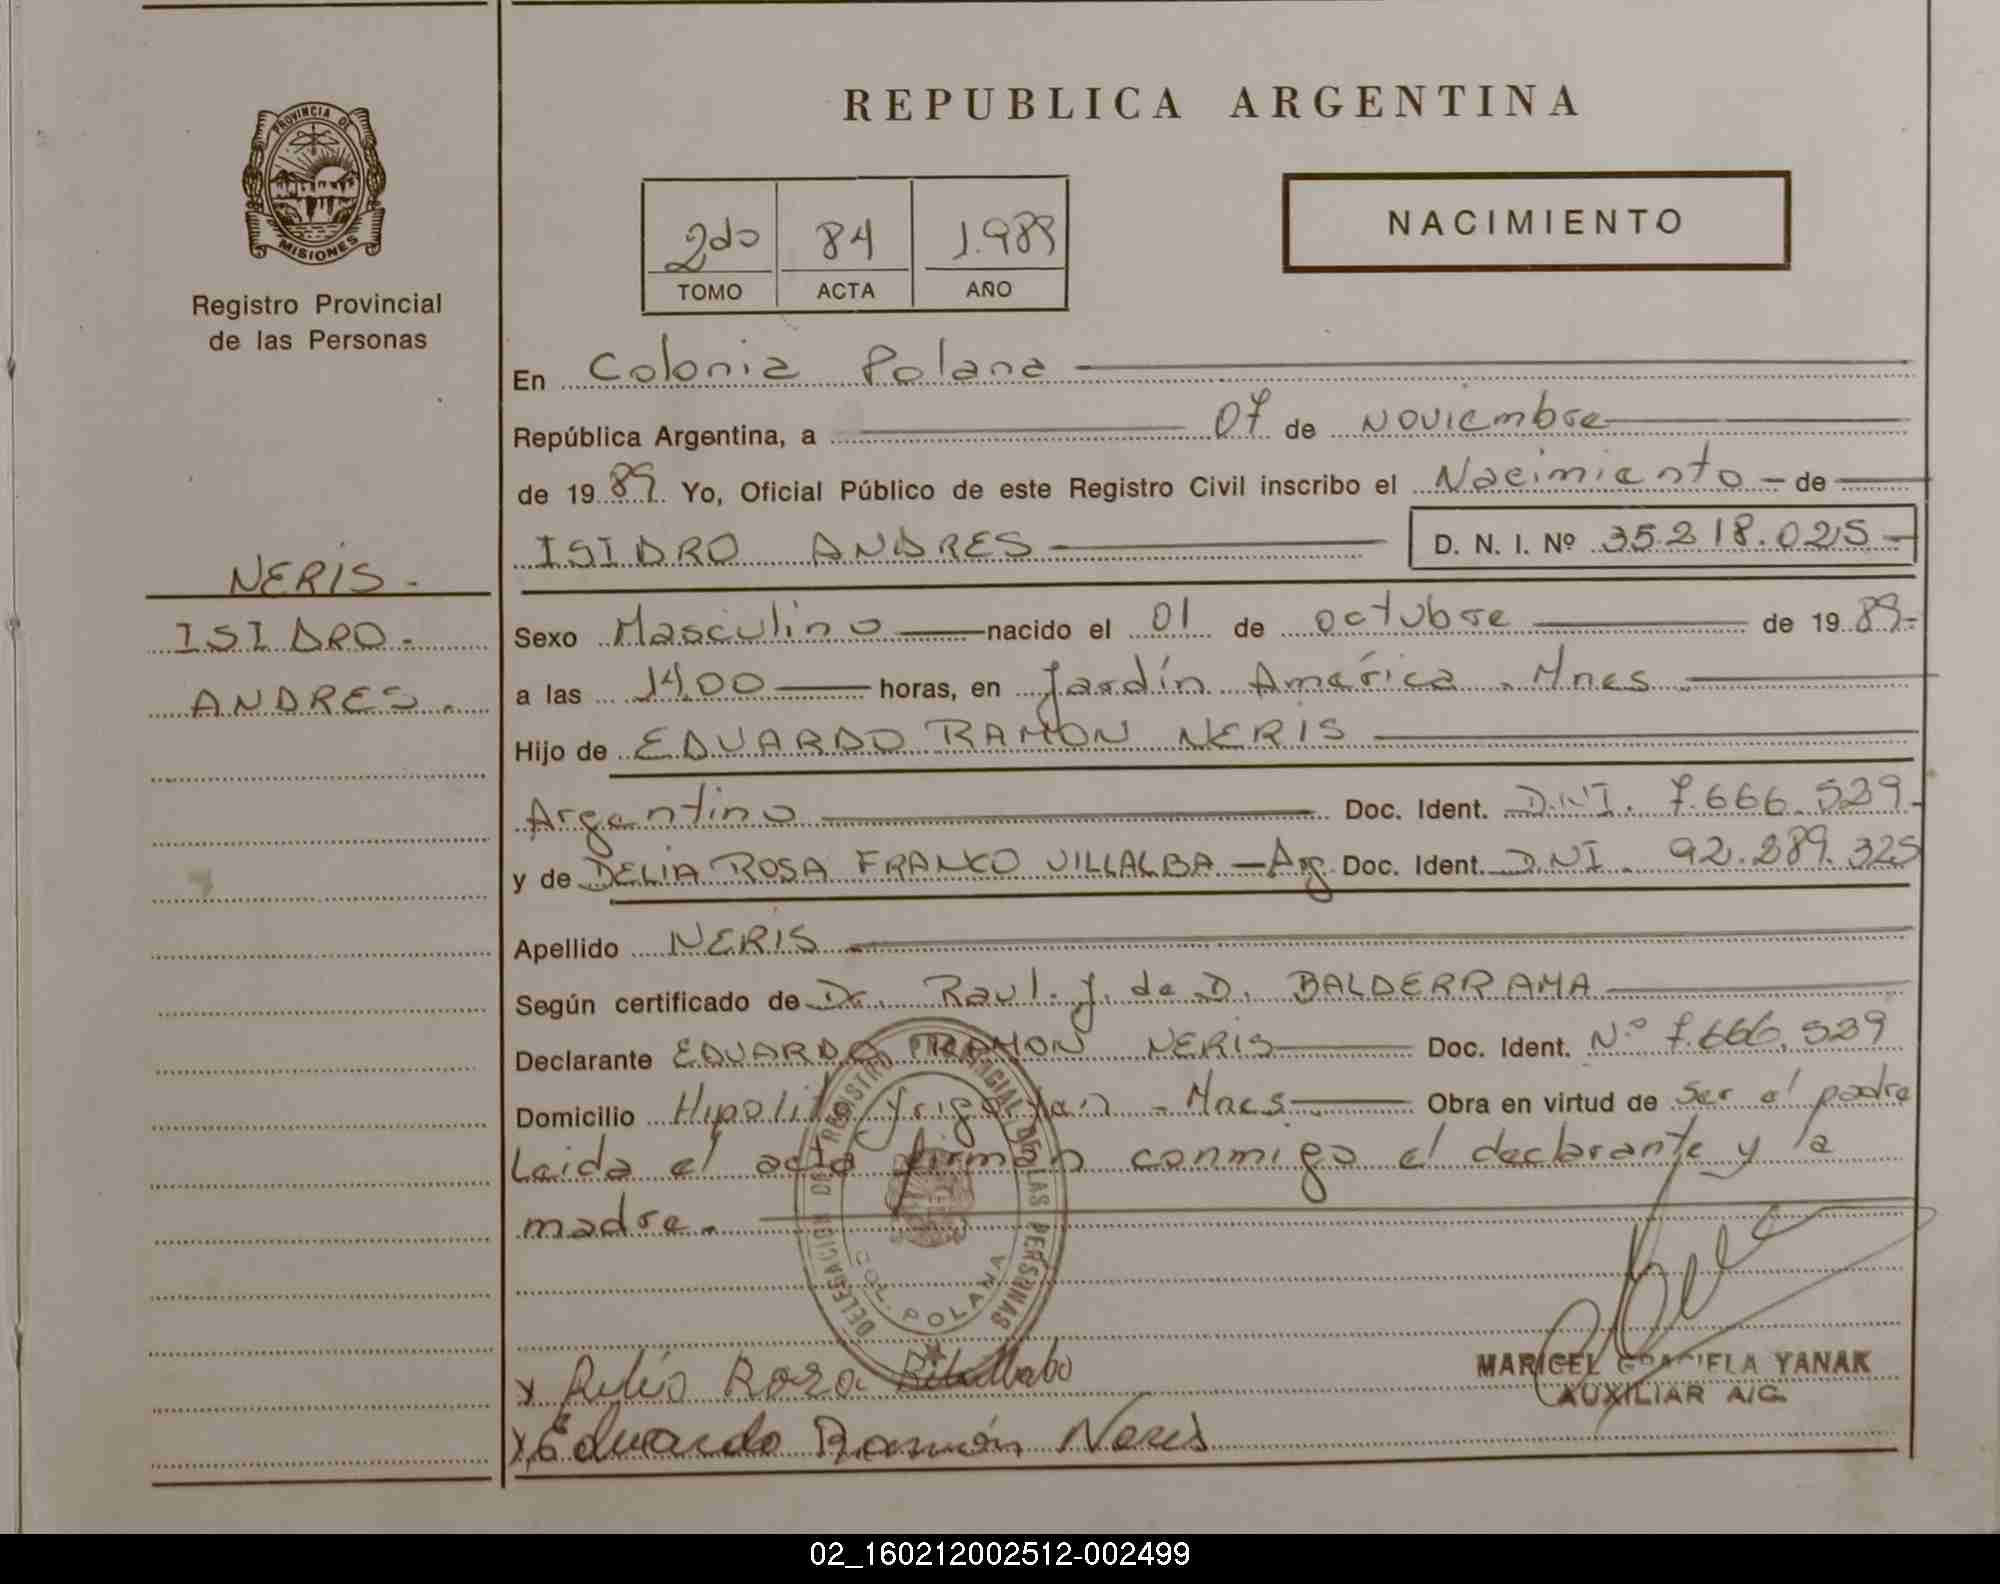 REPUBLICA ARGENTINA
PROVINCIA DE
MISIONES
Registro Provincial
de las Personas
NACIMIENTO
2do 84 1.989
TOMO ACTA AÑO
En Colonia Polana
República Argentina, a 07 de Noviembre
de 1989. Yo, Oficial Público de este Registro Civil inscribo el Nacimiento - de
ISIDRO ANDRES D. N. I. Nº 35.218.025-
NERIS -
ISIDRO -
ANDRES.
Sexo Masculino nacido el 01 de octubre de 1989-
a las 14,00 horas, en Jardín América - Mnes
Hijo de EDUARDO RAMON NERIS
Argentino Doc. Ident. D.N.I. 7.666.529-
y de DELIA ROSA FRANCO VILLALBA - Arg. Doc. Ident. D.NI. 92.289.325
Apellido NERIS
Según certificado de Dr. Raul. J. de D. BALDERRAMA
Declarante EDUARDO RAMON NERIS Doc. Ident. Nº 7.666.529
Domicilio Hipolito Yrigoyan - Mnes Obra en virtud de ser el padre
Leida el acta firman conmigo el declarante y la
madre.
DELEGACION DE REGISTRO PROVINCIAL DE LAS PERSONAS
COL. POLANA
x Rosa
MARICEL GRACIELA YANAK
AUXILIAR A/C.
x Eduardo Ramón Neris
02_160212002512-002499